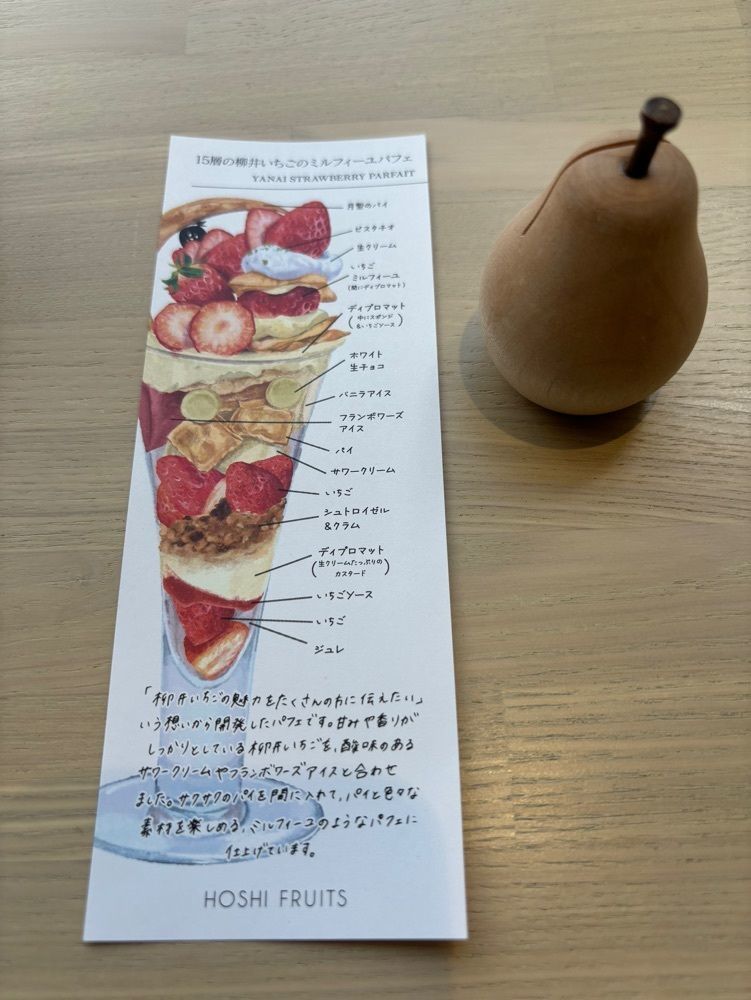 15層の柳井いちごのミルフィーユパフェ
YANAI STRAWBERRY PARFAIT
月型のパイ
ピスタチオ
生クリーム
いちご
ミルフィーユ
(間にディプロマット)
ディプロマット
(中にスポンジ
&いちごソース)
ホワイト
生チョコ
バニラアイス
フランボワーズ
アイス
パイ
サワークリーム
いちご
シュトロイゼル
&クラム
ディプロマット
(生クリームたっぷりの
カスタード)
いちごソース
いちご
ジュレ
「柳井いちごの魅力をたくさんの方に伝えたい」
いう想いから開発したパフェです。甘みや香りが
しっかりとしている柳井いちごを、酸味のある
サワークリームやフランボワーズアイスと合わせ
ました。サクサクのパイを間に入れて、パイと色々な
素材を楽しめる、ミルフィーユのようなパフェに
仕上げています。
HOSHI FRUITS